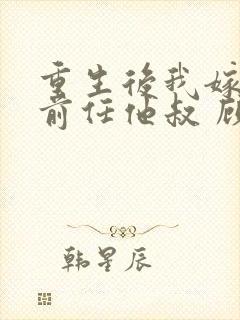 重生後我嫁
前任他叔 顾
韩星辰